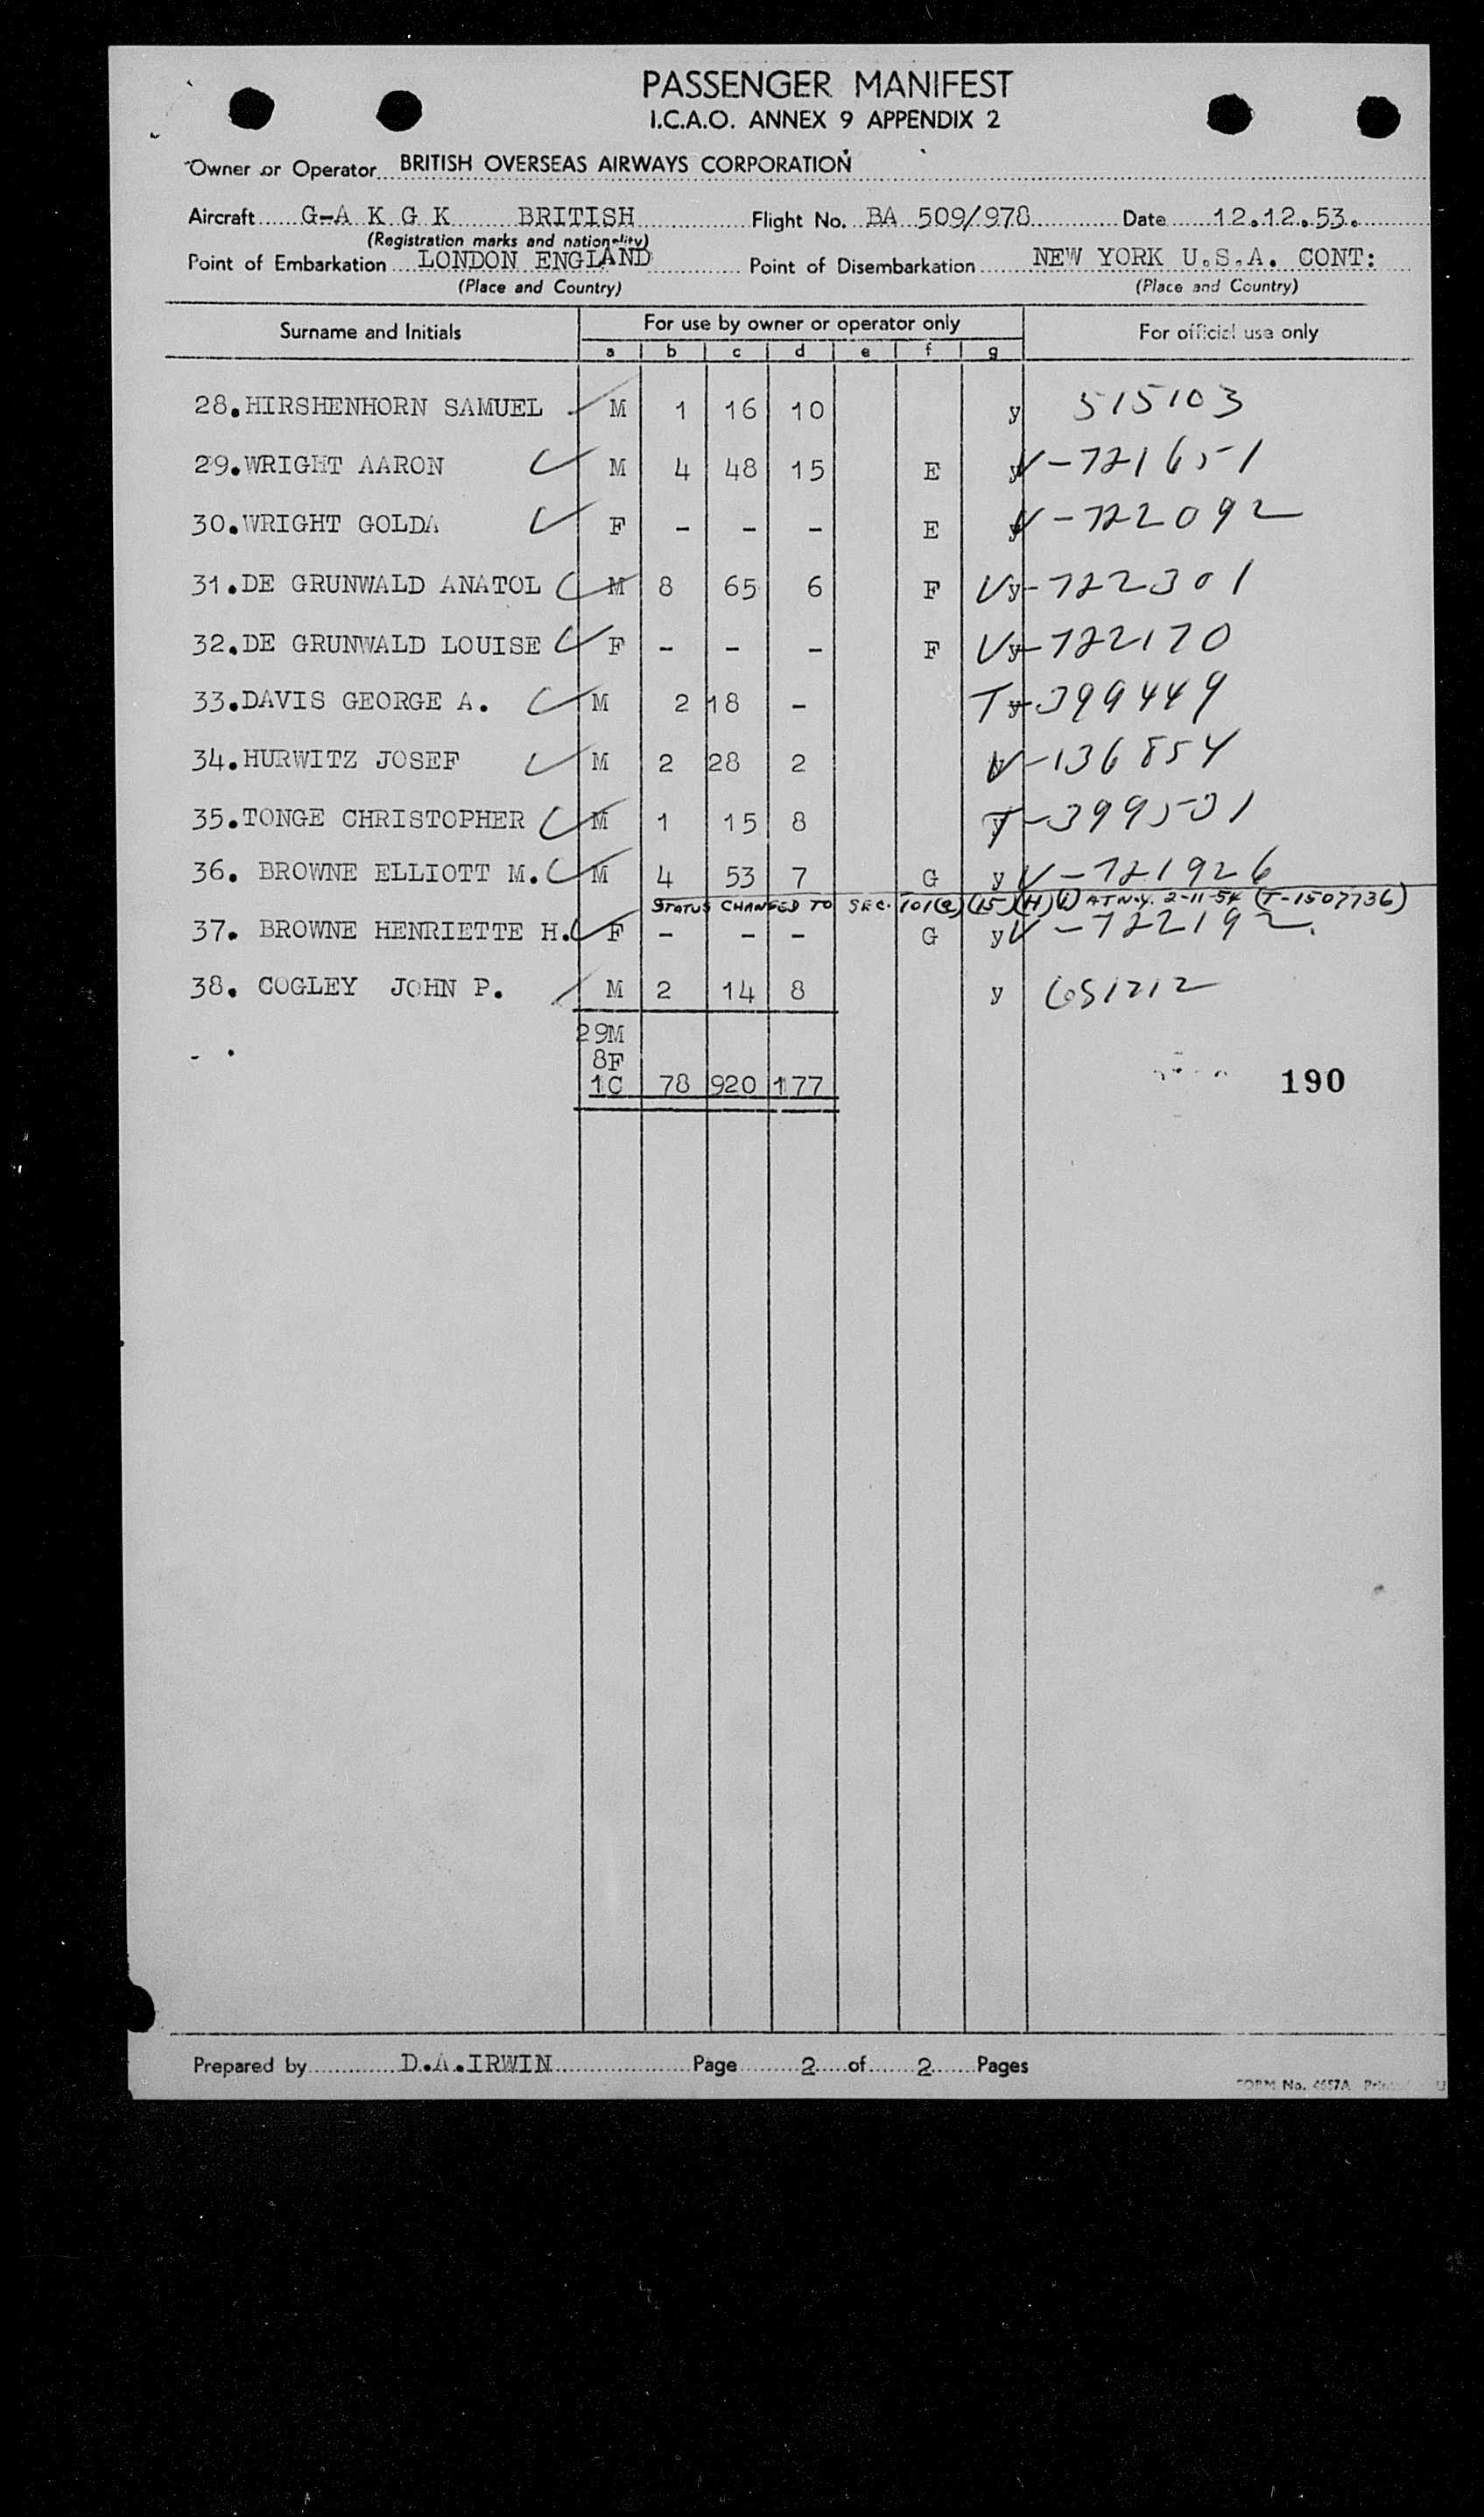 PASSENGER MANIFEST
I.C.A.O. ANNEX 9 APPENDIX 2
Owner or Operator BRITISH OVERSEAS AIRWAYS CORPORATION
Aircraft G-A K G K BRITISH Flight No. BA 509/978 Date 12.12.53.
(Registration marks and nationality)
Point of Embarkation LONDON ENGLAND Point of Disembarkation NEW YORK U.S.A. CONT:
(Place and Country) (Place and Country)
Surname and Initials For use by owner or operator only For official use only
a b c d e f g
28. HIRSHENHORN SAMUEL M 1 16 10 y 515103
29. WRIGHT AARON M 4 48 15 E y V-721651
30. WRIGHT GOLDA F - - - E y V-722092
31. DE GRUNWALD ANATOL M 8 65 6 F y V-722301
32. DE GRUNWALD LOUISE F - - - F y V-722170
33. DAVIS GEORGE A. M 2 18 - y T-399449
34. HURWITZ JOSEF M 2 28 2 V-136854
35. TONGE CHRISTOPHER M 1 15 8 y T-399501
36. BROWNE ELLIOTT M. M 4 53 7 G y V-721926
STATUS CHANGED TO SEC. 101(a)(15)(H)(i) AT N.Y. 2-11-54 (T-1507736)
37. BROWNE HENRIETTE H. F - - - G y V-722192.
38. COGLEY JOHN P. M 2 14 8 y 651212
29M
8F
1C 78 920 177
190
Prepared by D.A.IRWIN Page 2 of 2 Pages
FORM No. 4657A